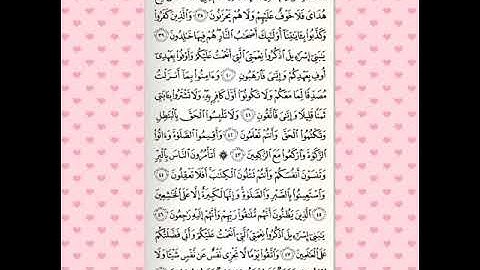 هُدَايَ فَلَا خَوْفٌ عَلَيْهِمْ وَلَا هُمْ يَحْزَنُونَ ٣٨ وَالَّذِينَ كَفَرُوا
وَكَذَّبُوا بِـَٔايَٰتِنَا أُولَٰئِكَ أَصْحَٰبُ النَّارِ هُمْ فِيهَا خَٰلِدُونَ ٣٩
يَٰبَنِي إِسْرَٰءِيلَ اذْكُرُوا نِعْمَتِيَ الَّتِي أَنْعَمْتُ عَلَيْكُمْ وَأَوْفُوا بِعَهْدِي
أُوفِ بِعَهْدِكُمْ وَإِيَّٰيَ فَارْهَبُونِ ٤٠ وَءَامِنُوا بِمَا أَنزَلْتُ
مُصَدِّقًا لِّمَا مَعَكُمْ وَلَا تَكُونُوا أَوَّلَ كَافِرٍ بِهِ وَلَا تَشْتَرُوا بِـَٔايَٰتِي
ثَمَنًا قَلِيلًا وَإِيَّٰيَ فَاتَّقُونِ ٤١ وَلَا تَلْبِسُوا الْحَقَّ بِالْبَٰطِلِ
وَتَكْتُمُوا الْحَقَّ وَأَنتُمْ تَعْلَمُونَ ٤٢ وَأَقِيمُوا الصَّلَوٰةَ وَءَاتُوا
الزَّكَوٰةَ وَارْكَعُوا مَعَ الرَّٰكِعِينَ ٤٣ ۞ أَتَأْمُرُونَ النَّاسَ بِالْبِرِّ
وَتَنسَوْنَ أَنفُسَكُمْ وَأَنتُمْ تَتْلُونَ الْكِتَٰبَ أَفَلَا تَعْقِلُونَ ٤٤
وَاسْتَعِينُوا بِالصَّبْرِ وَالصَّلَوٰةِ وَإِنَّهَا لَكَبِيرَةٌ إِلَّا عَلَى الْخَٰشِعِينَ
٤٥ الَّذِينَ يَظُنُّونَ أَنَّهُم مُّلَٰقُوا رَبِّهِمْ وَأَنَّهُمْ إِلَيْهِ رَٰجِعُونَ ٤٦
يَٰبَنِي إِسْرَٰءِيلَ اذْكُرُوا نِعْمَتِيَ الَّتِي أَنْعَمْتُ عَلَيْكُمْ وَأَنِّي فَضَّلْتُكُمْ
عَلَى الْعَٰلَمِينَ ٤٧ وَاتَّقُوا يَوْمًا لَّا تَجْزِي نَفْسٌ عَن نَّفْسٍ شَيْـًٔا وَلَا